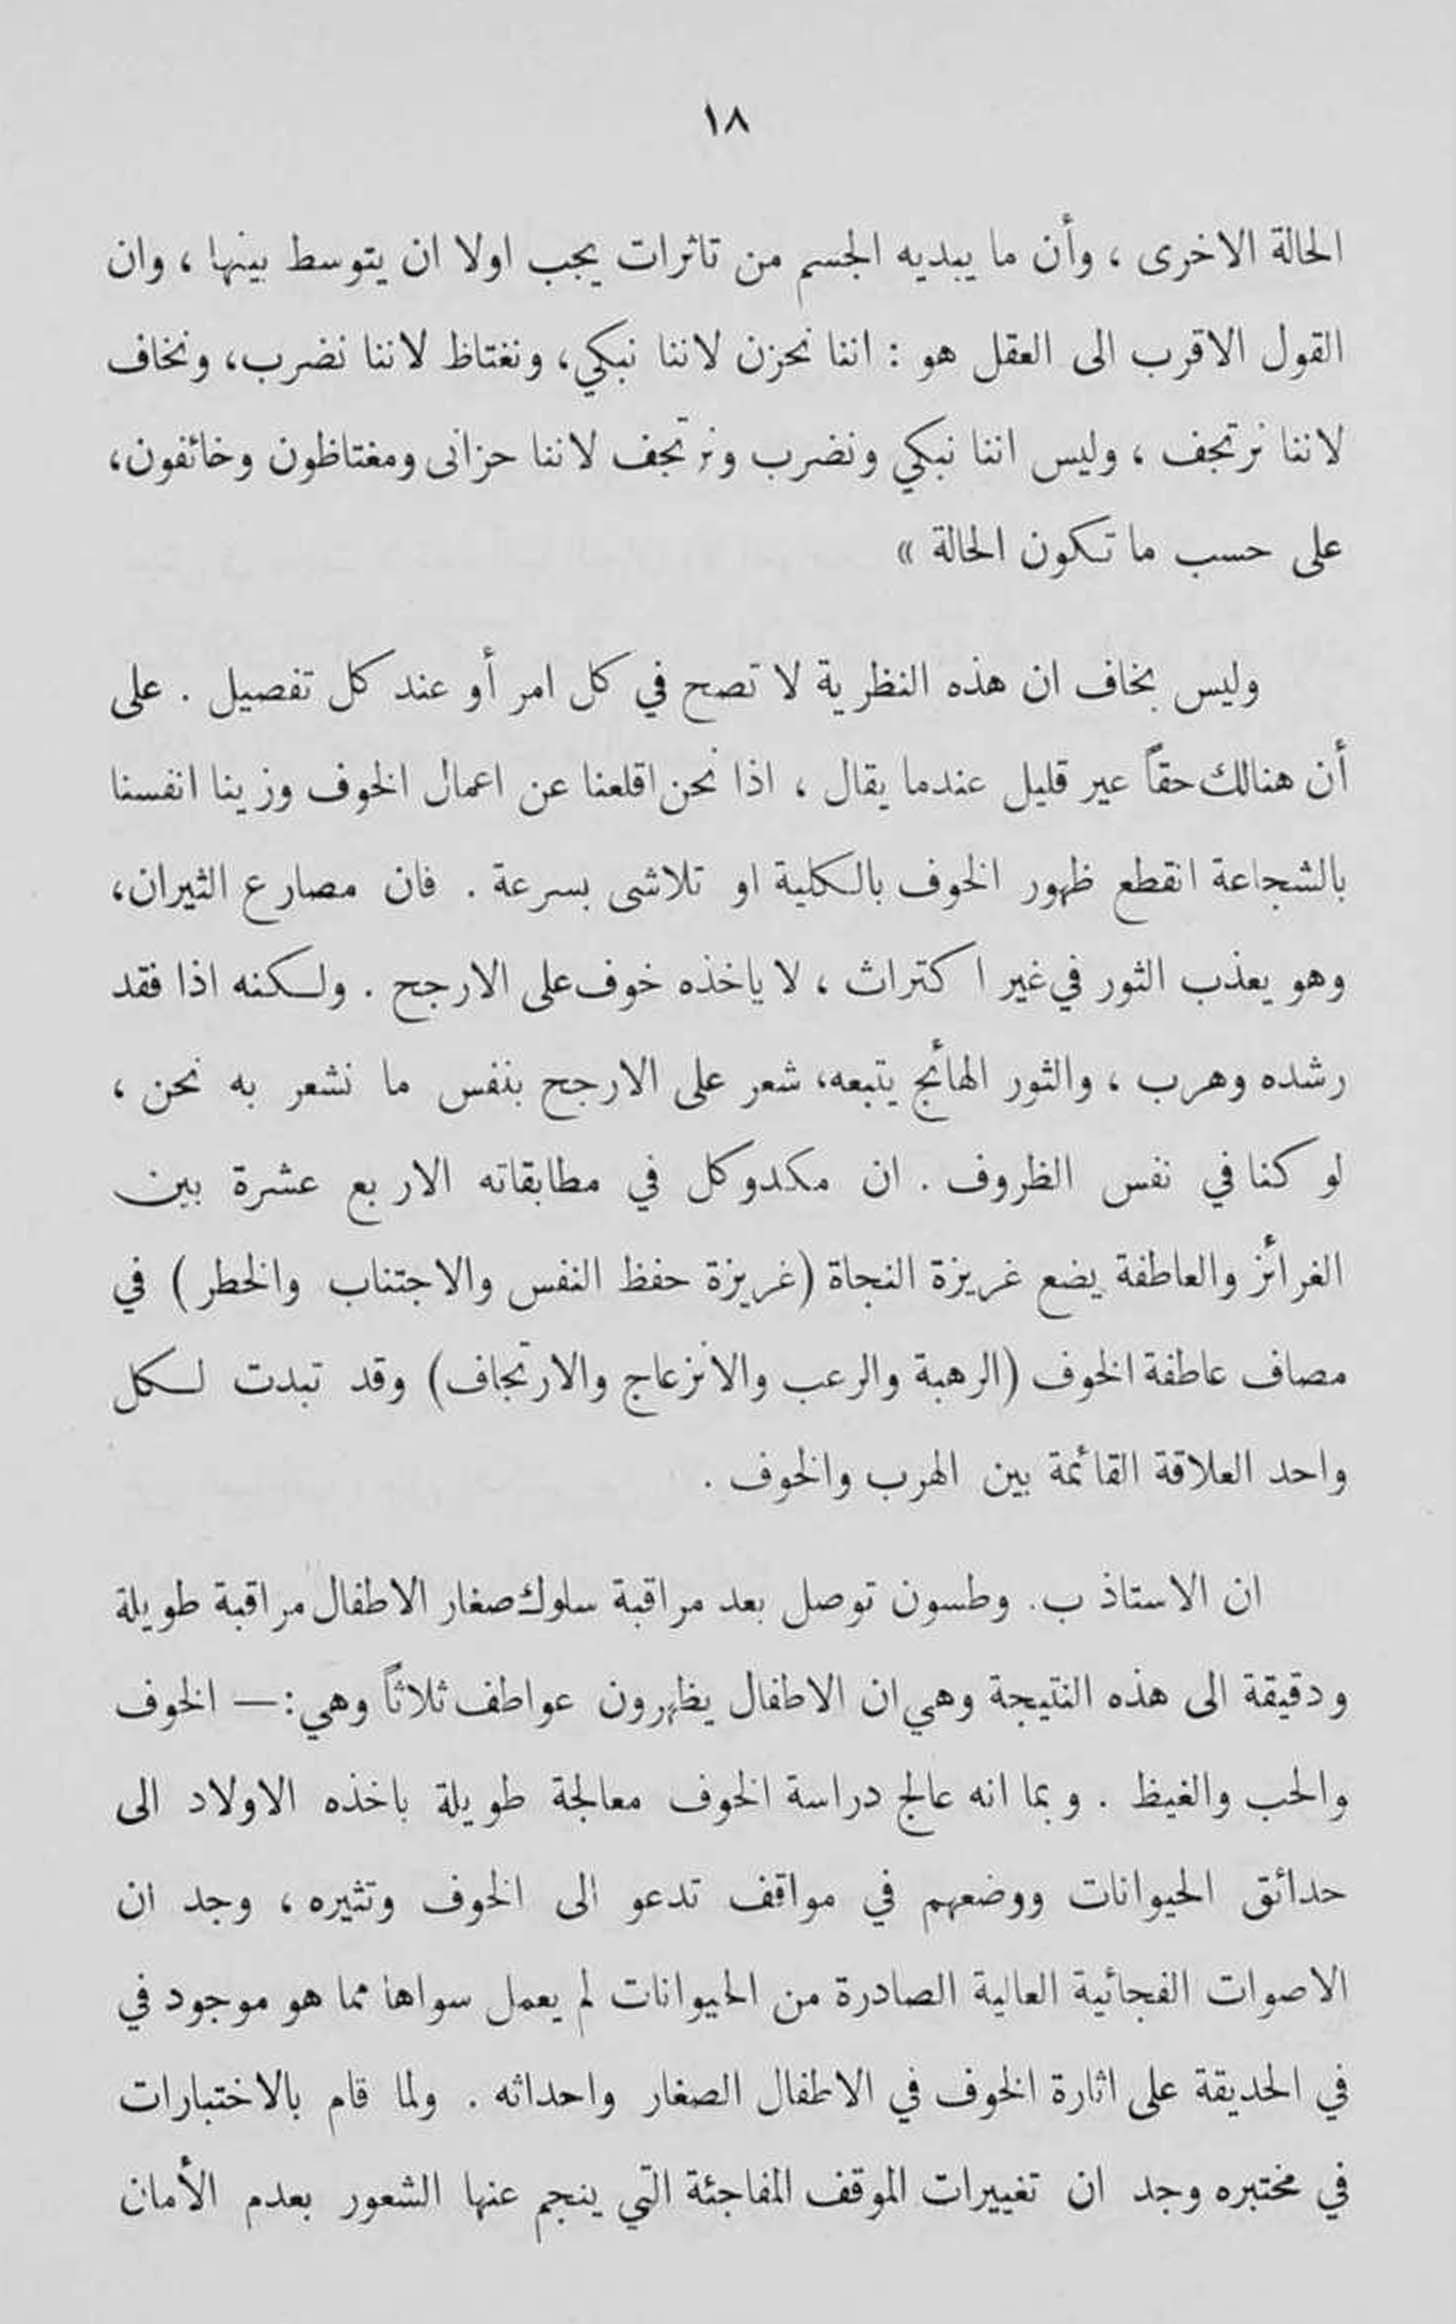 ١٨
الحالة الاخرى ، وأن ما يبديه الجسم من تاثرات يجب اولا ان يتوسط بينها ، وان
القول الاقرب الى العقل هو : اننا نحزن لاننا نبكي، ونغتاظ لاننا نضرب، ونخاف
لاننا نرتجف ، وليس اننا نبكي ونضرب ونرتجف لاننا حزانى ومغتاظون وخائفون،
على حسب ما تكون الحالة »
وليس بخاف ان هذه النظرية لا تصح في كل امر أو عند كل تفصيل . على
أن هنالك حقاً عير قليل عندما يقال ، اذا نحن اقلعنا عن اعمال الخوف وزينا انفسنا
بالشجاعة انقطع ظهور الخوف بالكلية او تلاشى بسرعة . فان مصارع الثيران،
وهو يعذب الثور في غير اكتراث ، لا ياخذه خوف على الارجح . ولكنه اذا فقد
رشده وهرب ، والثور الهائج يتبعه، شعر على الارجح بنفس ما نشعر به نحن ،
لو كنا في نفس الظروف . ان مكدوكل في مطابقاته الاربع عشرة بين
الغرائز والعاطفة يضع غريزة النجاة (غريزة حفظ النفس والاجتناب والخطر) في
مصاف عاطفة الخوف (الرهبة والرعب والانزعاج والارتجاف) وقد تبدت لكل
واحد العلاقة القائمة بين الهرب والخوف .
ان الاستاذ ب. وطسون توصل بعد مراقبة سلوك صغار الاطفال مراقبة طويلة
ودقيقة الى هذه النتيجة وهي ان الاطفال يظهرون عواطف ثلاثاً وهي :— الخوف
والحب والغيظ . وبما انه عالج دراسة الخوف معالجة طويلة باخذه الاولاد الى
حدائق الحيوانات ووضعهم في مواقف تدعو الى الخوف وتثيره ، وجد ان
الاصوات الفجائية العالية الصادرة من الحيوانات لم يعمل سواها مما هو موجود في
في الحديقة على اثارة الخوف في الاطفال الصغار واحداثه . ولما قام بالاختبارات
في مختبره وجد ان تغييرات الموقف المفاجئة التي ينجم عنها الشعور بعدم الأمان